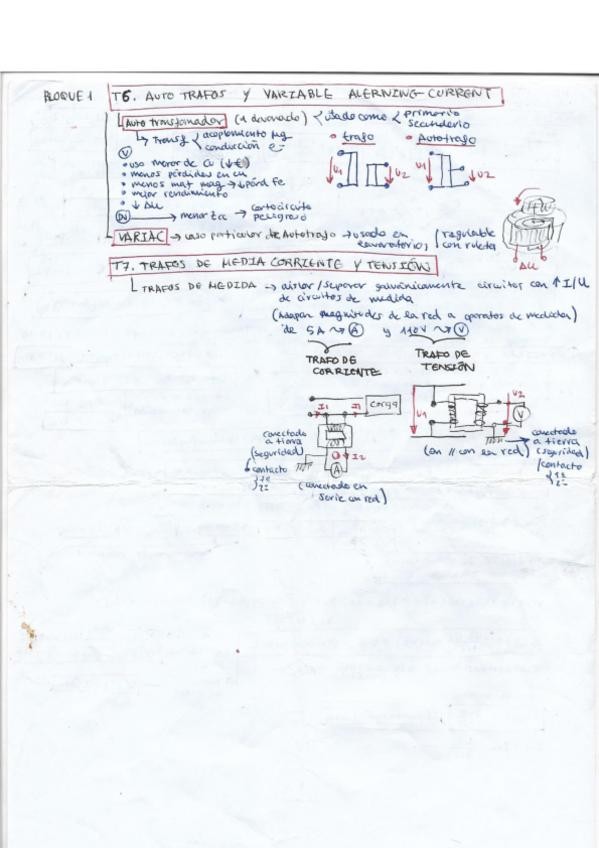 BLOQUE 1
T6. AUTO TRAFOS Y VARIABLE ALERNING CURRENT
Auto transfomador (1 devanado) usado como primario
secundario
Transf acoplamiento mg
conducción e-
V
• uso menor de Cu (↓€)
• menos pérdidas en cu
• menos mat mag → ↓ pérd Fe
• mejor rendimiento
• ↓ ΔU
trafo
U1
U2
Autotrafo
U1
U2
IN → menor Zcc → cortocircuito
peligroso
VARIAC → caso particular de Autotrafo → usado en
lavoratorios, regulable
con ruleta
ΔU
T7. TRAFOS DE MEDIA CORRIENTE Y TENSIÓN
TRAFOS DE MEDIDA → aislar/separar galvánicamente circuitos con ↑ I/U
de circuitos de medida
(Adapan magnitudes de la red a aparatos de medida)
de 5A ~→ A y 110V ~→ V
TRAFO DE
CORRIENTE
TRAFO DE
TENSIÓN
I1
I1
Carga
conectado
a tierra
(seguridad)
• contacto
1º
2º
I2
A
(conectado en
serie con red)
U1
U2
V
(en // con la red)
conectado
a tierra
(seguridad)
/contacto
1º
2º